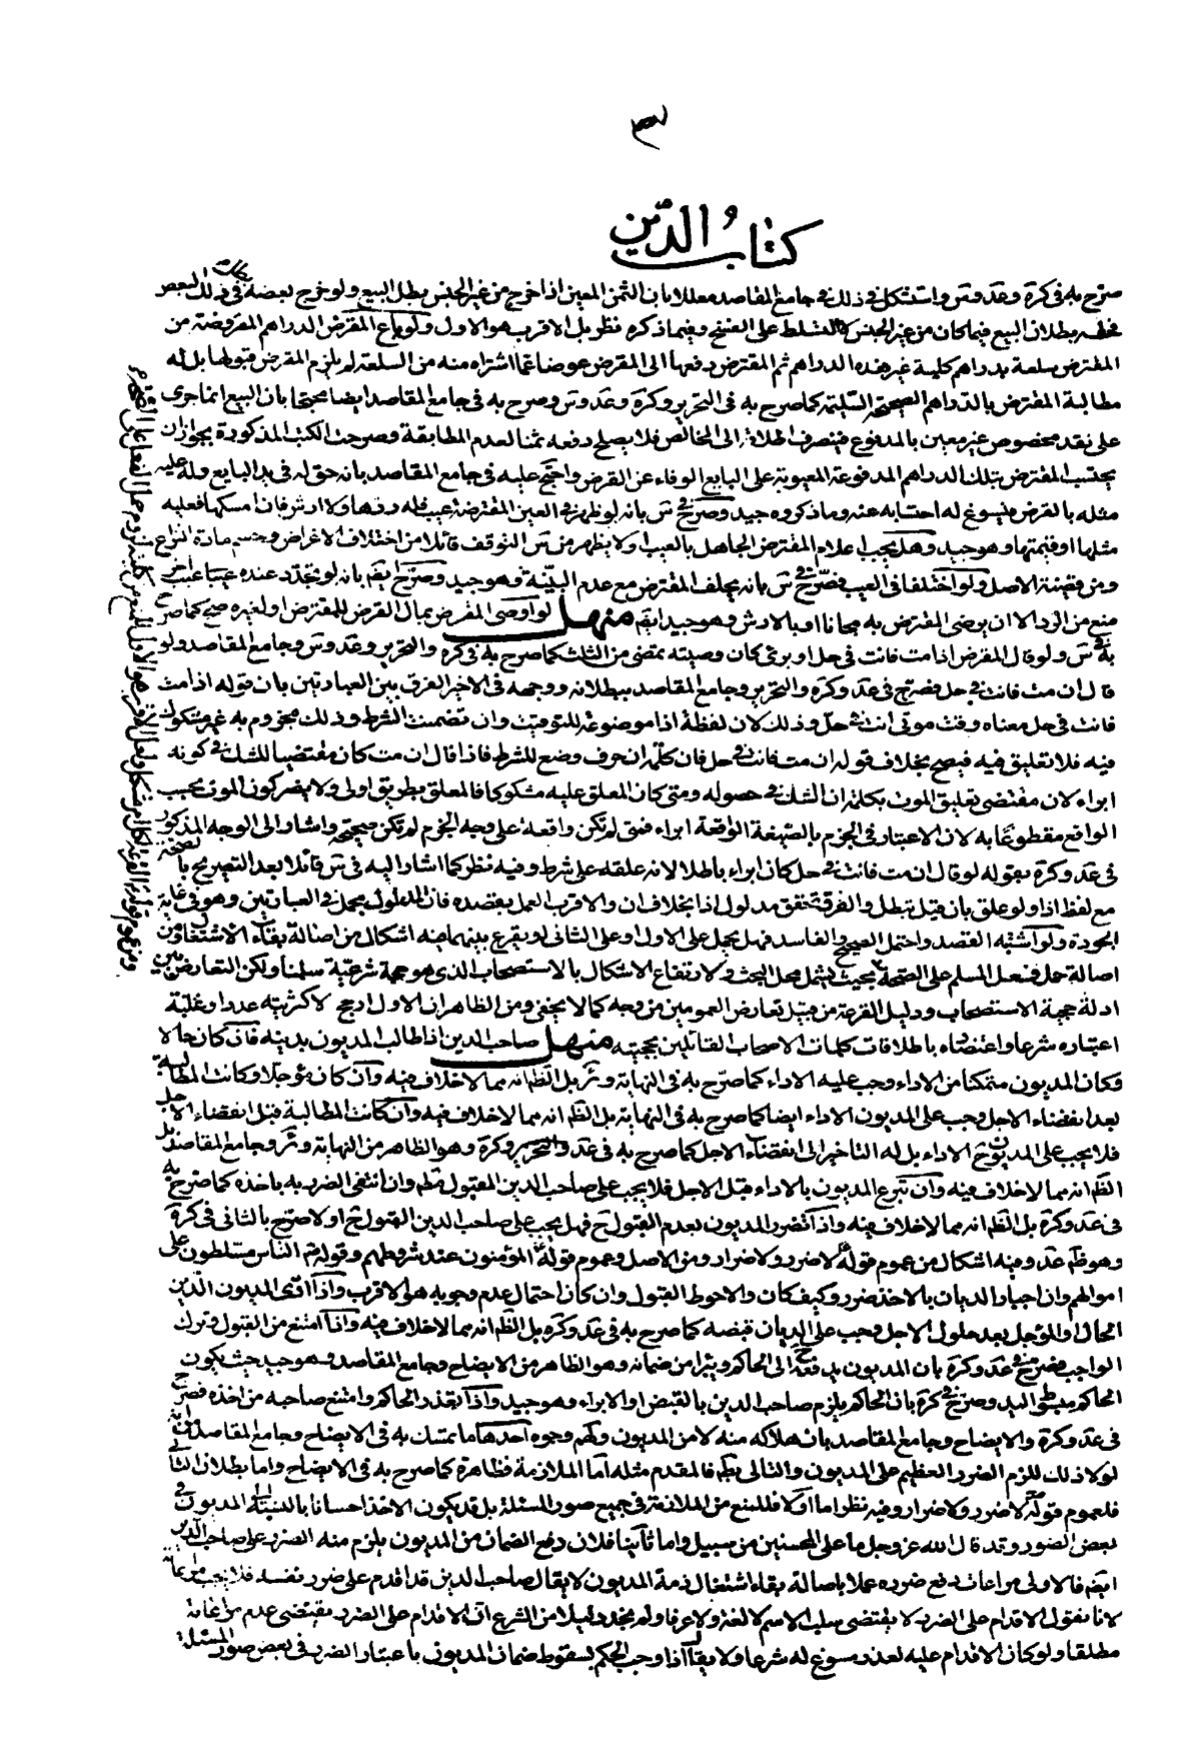 ٣
كتاب الدين
صرّح به فى كرة وعد وس واستشكل فى ذلك فى جامع المقاصد معللا بان الثمن المعين اذا خرج من غير الجنس بطل البيع ولو خرج بعضه فى ذلك البعض
بطلان البيع فيما كان من غير الجنس كالتسلط على الفسخ وفيما ذكره نظر بل الاقرب هو الاول ولو باع المقرض الدراهم المقروضة من
المقترض سلعة بدراهم كلية غير هذه الدراهم ثم المقترض دفعها الى المقرض عوضا عما اشتراه منه من السلعة لم يلزم المقرض قبولها بل له
مطالبة المقترض بالدراهم الصحيحة السليمة كما صرح به فى التحرير وكرة وعد وس وصرح به فى جامع المقاصد ايضا محتجا بان البيع انما جرى
على نقد مخصوص غير معين بالمدفوع فينصرف اطلاقه الى الخالص فلا يصلح دفعه ثمنا لعدم المطابقة وصرحت الكتب المذكورة بجواز ان
يحتسب المقترض بتلك الدراهم المدفوعة المعيوبة على البايع الوفاء عن القرض واحتج عليه فى جامع المقاصد بانه حق له فى يد البايع وله عليه
مثله بالقرض فيسوغ له احتسابه عنه وما ذكروه جيد وصرح فى س بانه لو ظهر فى العين المقترضة عيب فله ردها ولا ارش فان امسكها فعليه
مثلها او قيمتها وهو جيد وهل يجب اعلام المقترض الجاهل بالعيب اولا يظهر من س التوقف قائلا من اختلاف الاغراض وحسم مادة النزاع
ومن قضية الاصل ولو اختلفا فى العيب فصرح فى س بانه يحلف المقرض مع عدم البينة وهو جيد وصرح ايضا بانه لو تجدد عنده عيبا اخر
منع من الرد الا ان يرضى المقرض به مجانا او بالارش وهو جيد ايضا منهل لو اوصى المقرض بمال القرض للمقترض او لغيره صح كما صرح
به فى س ولو قال المقرض اذا مت فانت فى حل او برئ كان وصيته بمضى من الثلث كما صرح به فى كرة والتحرير وعد وس وجامع المقاصد ولو
قال ان مت فانت فى حل فصرح فى عد وكرة والتحرير وجامع المقاصد ببطلانه ووجهه فى الاخير الفرق بين العبارتين بان قوله اذا مت
فانت فى حل معناه وقت موتى انت فى حل وذلك لان لفظة اذا موضوعة للتوقيت وان تضمنت الشرط وذلك مجزوم به غير مشكوك
فيه فلا تعليق فيه فيصح بخلاف قوله ان مت فانت فى حل فان كلمة ان حرف وضع للشرط فاذا قال ان مت كان مقتضيا للشك فى كونه
ابراء لان مقتضى تعليق الموت بكلمة ان الشك فى حصوله ومتى كان المعلق عليه مشكوكا فالمعلق بطريق اولى ولا يضر كون الموت بحسب
الواقع مقطوعا به لان الاعتبار فى الجزم بالصيغة الواقعة ابراء فمتى لم تكن واقعة على وجه الجزم لم تكن صحيحة واشار الى الوجه المذكور
فى عد وكرة بقوله لو قال ان مت فانت فى حل كان ابراء باطلا لانه علقه على شرط وفيه نظر كما اشار اليه فى س قائلا بعد التصريح بالصحة
مع لفظ اذا ولو علق بان قيل تبطل والفرق تحقق مدلول اذا بخلاف ان والاقرب العمل بقصده فان المدلول مجمل فى العبارتين وهو فى غاية
الجودة ولو اشتبه القصد واحتمل الصحيح والفاسد فهل يحمل على الاول او على الثانى لو يقرع بينهما فيه اشكال من اصالة بقاء الاشتغال ومن
اصالة حمل فعل المسلم على الصحة بحيث يشمل محل البحث ولارتفاع الاشكال بالاستصحاب الذى هو حجة شرعية سلمنا ولكن التعارض بين
ادلة حجية الاستصحاب ودليل القرعة من قبيل تعارض العمومين من وجه كما لا يخفى ومن الظاهر ان الاول ارجح لاكثريته عددا وغلبة
اعتباره شرعا واعتضاده باطلاقات كلمات الاصحاب القائلين بحجيته منهل صاحب الدين اذا طالب المديون بدينه فان كان حالا
وكان المديون متمكنا من الاداء وجب عليه الاداء كما صرّح به فى النهاية وئر بل الظ انه مما لا خلاف فيه وان كان مؤجلا وكانت المطالبة
بعد انقضاء الاجل وجب على المديون الاداء ايضا كما صرح به فى النهاية بل الظ انه مما لا خلاف فيه وان كانت المطالبة قبل انقضاء الاجل
فلا يجب على المديون ح الاداء بل له التاخير الى انقضاء الاجل كما صرح به فى عد والتحرير وكرة وهو الظاهر من النهاية وئر وجامع المقاصد بل
الظ انه مما لا خلاف فيه وان تبرع المديون بالاداء قبل الاجل فلا يجب على صاحب الدين القبول مطلقا وان انتفى الضرر به باخذه كما صرح به
فى عد وكرة بل الظ انه مما لا خلاف فيه واذا تضرر المديون بعدم القبول ح فهل يجب على صاحب الدين القبول ح او لا صرّح بالثانى فى كرة
وهو ظ عد وفيه اشكال من عموم قوله لا ضرر ولا ضرار ومن الاصل وعموم قوله المؤمنون عند شروطهم وقوله الناس مسلطون على
اموالهم وان اجبار الديان بالاخذ ضرر وكيف كان والاحوط القبول وان كان احتمال عدم وجوبه هو الاقرب واذا ادّى المديون الدين
الحال او المؤجل بعد حلول الاجل وجب على الديان قبضه كما صرح به فى عد وكرة بل الظ انه مما لا خلاف فيه واذا امتنع من القبول وترك
الواجب فصرح فى عد وكرة بان المديون يدفعه الى الحاكم ويبرا من ضمانه وهو الظاهر من الايضاح وجامع المقاصد وهو جيد حيث يكون
الحاكم مبسوط اليد وصرح فى كرة بان الحاكم يلزم صاحب الدين بالقبض او الابراء وهو جيد واذا تعذر الحاكم وامتنع صاحبه من اخذه فصرح
فى عد وكرة والايضاح وجامع المقاصد بان هلاكه منه لا من المديون ولهم وجوه احدها ما تمسك به فى الايضاح وجامع المقاصد من انه
لولا ذلك للزم الضرر العظيم على المديون والتالى بط فالمقدم مثله اما الملازمة فظاهرة كما صرح به فى الايضاح واما بطلان التالى
فلعموم قوله لا ضرر ولا ضرار وفيه نظر اما اولا فللمنع من الملازمة فى جميع صور المسئلة بل قد يكون الاخذ احسانا بالنسبة الى المديون فى
بعض الصور وقد قال الله عز وجل ما على المحسنين من سبيل واما ثانيا فلان دفع الضمان من المديون يلزم منه الضرر على صاحب الدين
ايضا فالاولى مراعات دفع ضرره عملا باصالة بقاء اشتغال ذمة المديون لا يقال صاحب الدين قد اقدم على ضرر نفسه فلا يجب مراعاته
لانا نقول الاقدام على الضرر لا يقتضى سلب الاسم لا لغة ولا عرفا ولم نجد دليلا من الشرع ان الاقدام على الضرر يقتضى عدم مراعاته
مطلقا ولو كان الاقدام عليه لعذر مسوغ له شرعا ولا يقال اذا وجب الحكم بسقوط ضمان المديون باعتبار الضرر فى بعض صور المسئلة